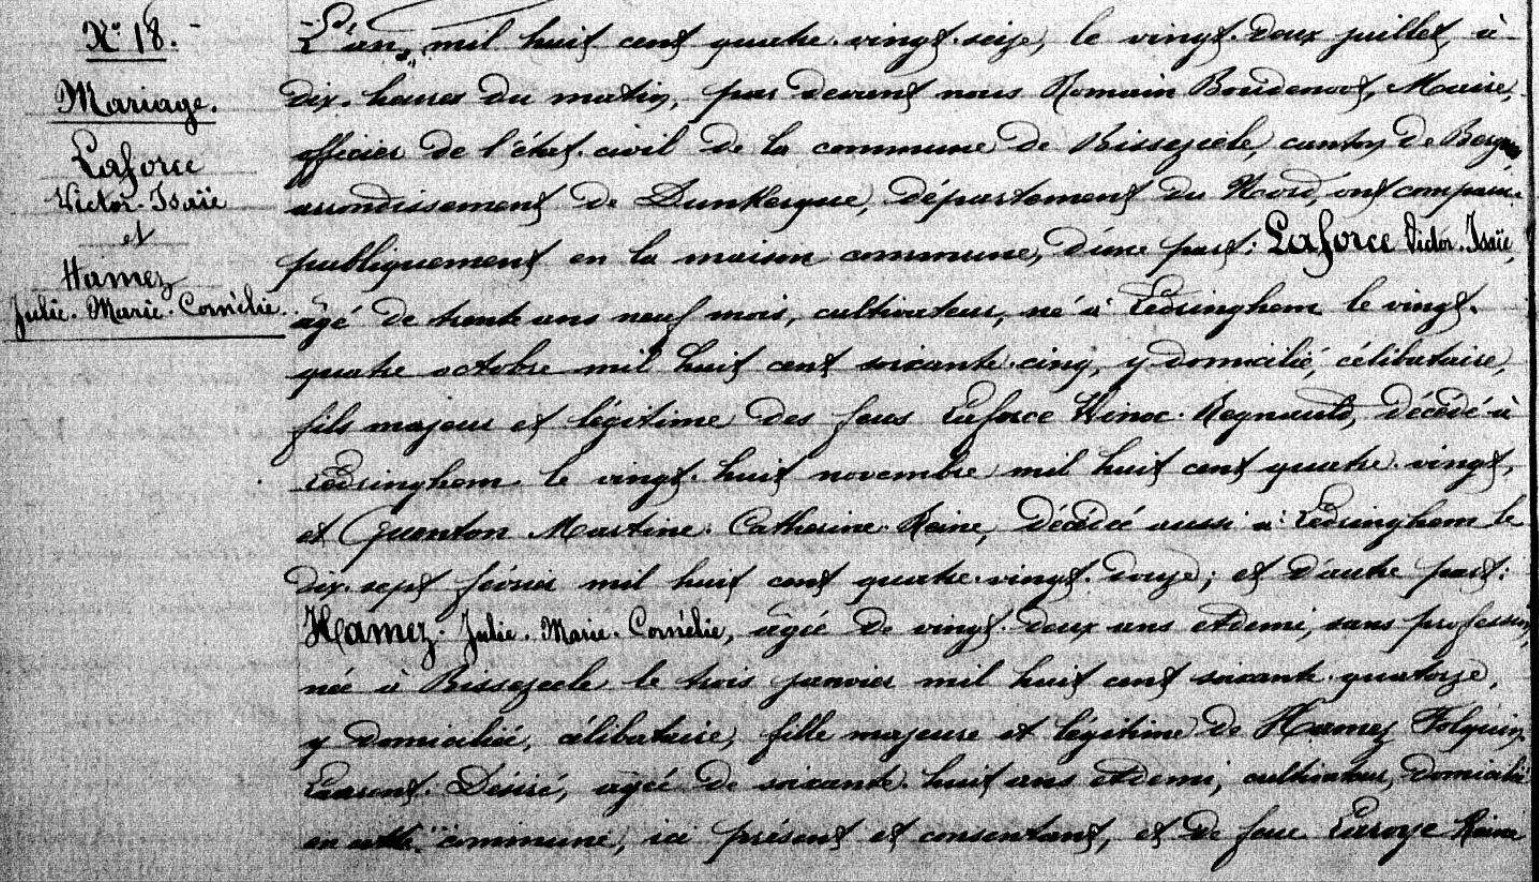 N° 18.
Mariage.
Laforce
Victor-Isaïe
et
Hamez
Julie-Marie-Cornélie.
L'an mil huit cent quatre-vingt-seize, le vingt-deux juillet, à
dix heures du matin, par devant nous Romain Boudenoot, Maire,
officier de l'état-civil de la commune de Bissezeele, canton de Bergues
arrondissement de Dunkerque, département du Nord, ont comparu
publiquement en la maison commune, d'une part: Laforce Victor-Isaïe,
âgé de trente ans neuf mois, cultivateur, né à Ledringhem le vingt-
quatre octobre mil huit cent soixante-cinq, y domicilié, célibataire,
fils majeur et légitime des feus Laforce Winoc-Regnauld, décédé à
Ledringhem le vingt-huit novembre mil huit cent quatre-vingt,
et Quenton Martine-Catherine-Reine, décédée aussi à Ledringhem le
dix-sept février mil huit cent quatre-vingt-douze; et d'autre part:
Hamez-Julie-Marie-Cornélie, âgée de vingt-deux ans et demi, sans profession,
née à Bissezeele le trois janvier mil huit cent soixante-quatorze,
y domiciliée, célibataire, fille majeure et légitime de Hamez Folquin-
Laurent-Désiré, âgé de soixante-huit ans et demi, cultivateur, domicilié
en cette commune, ici présent et consentant, et de feue Laroye Reine